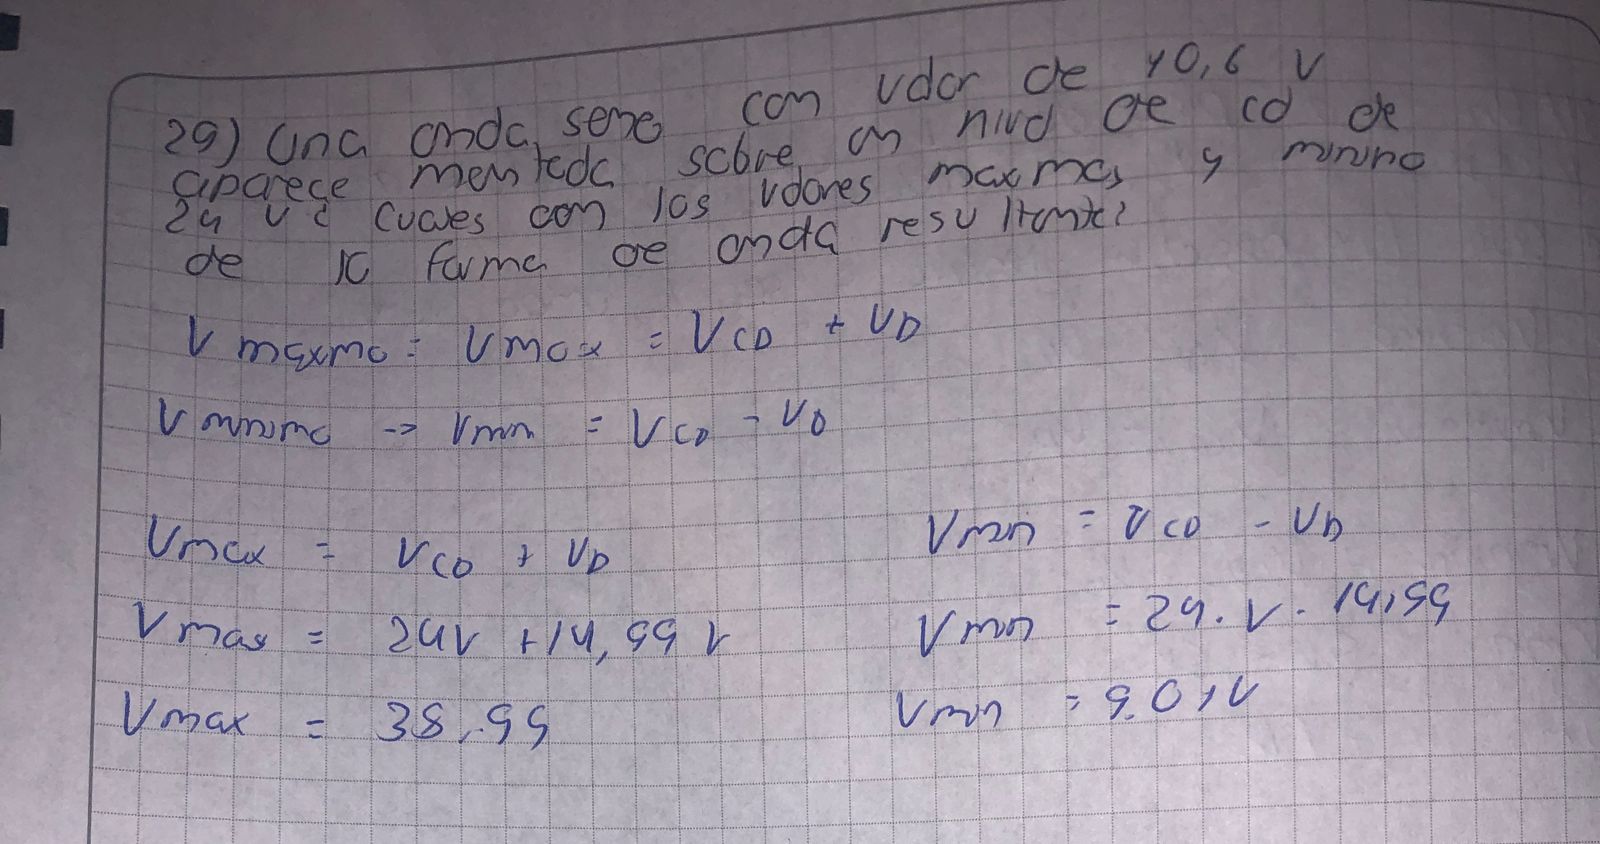 29) Una onda seno con valor de 10,6 V
aparece montada sobre un nivel de cd de
24 V ¿ cuales con los valores maxmos y mnimo
de la forma de onda resultante?
V maxmo = Vmax = VCD + VP
V mnimo -> Vmin = VCD - VP
Vmax = VCD + VP
Vmin = VCD - VP
Vmax = 24V + 14,99 V
Vmin = 24 V - 14,99
Vmax = 38,99
Vmin = 9.01V